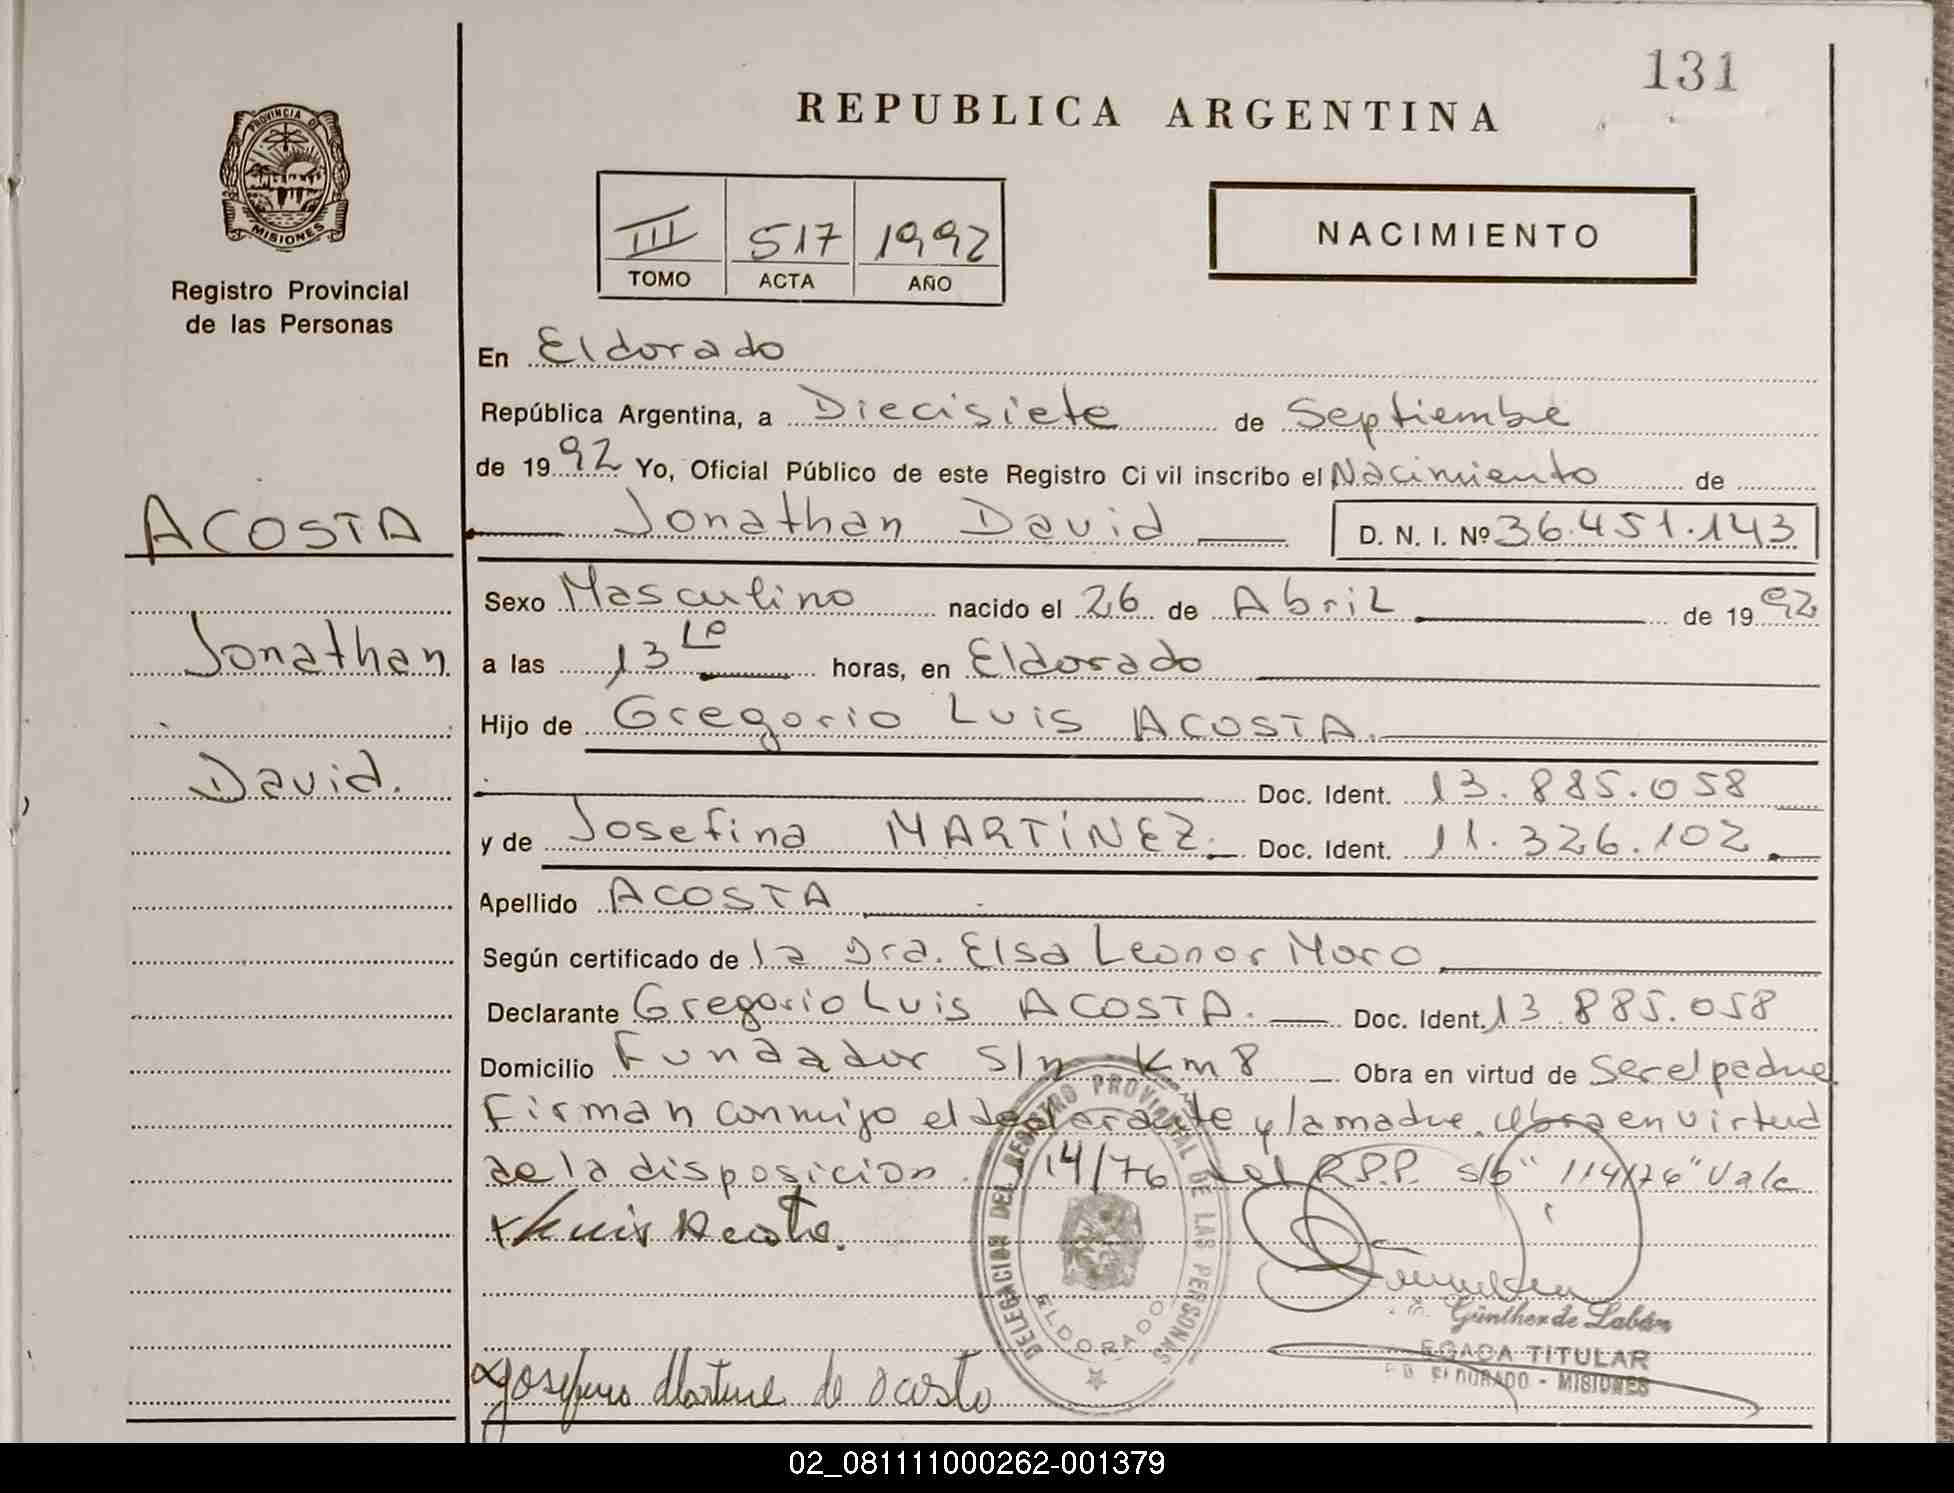 131
REPUBLICA ARGENTINA
PROVINCIA DE
MISIONES
Registro Provincial
de las Personas
III 517 1992
TOMO ACTA AÑO
NACIMIENTO
En Eldorado
República Argentina, a Diecisiete de Septiembre
de 1992 Yo, Oficial Público de este Registro Civil inscribo el Nacimiento de
ACOSTA
Jonathan
David.
Jonathan David D. N. I. Nº 36.451.143
Sexo Masculino nacido el 26 de Abril de 1992
a las 13 horas, en Eldorado
Hijo de Gregorio Luis ACOSTA.
Doc. Ident. 13.885.058
y de Josefina MARTÍNEZ. Doc. Ident. 11.326.102
Apellido ACOSTA
Según certificado de la Dra. Elsa Leonor Moro
Declarante Gregorio Luis ACOSTA. Doc. Ident. 13.885.058
Domicilio Fundador s/n Km 8 Obra en virtud de ser el padre
Firman conmigo el declarante y la madre. Obra en virtud
de la disposicion 14/76 del R.P.P. s/b "114/76" Vale
Luis Acosta.
DELEGACION DEL REGISTRO PROVINCIAL DE LAS PERSONAS
ELDORADO
Günther de Labán
EGADA TITULAR
ELDORADO - MISIONES
Josefina Martinez de Acosta
02_081111000262-001379